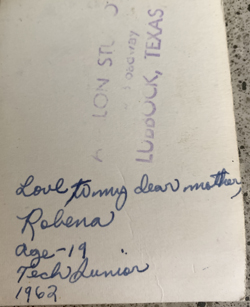 LON ST
LUBBOCK, TEXAS
Love to my dear mother,
Robena
age-19
Tech Junior
1962